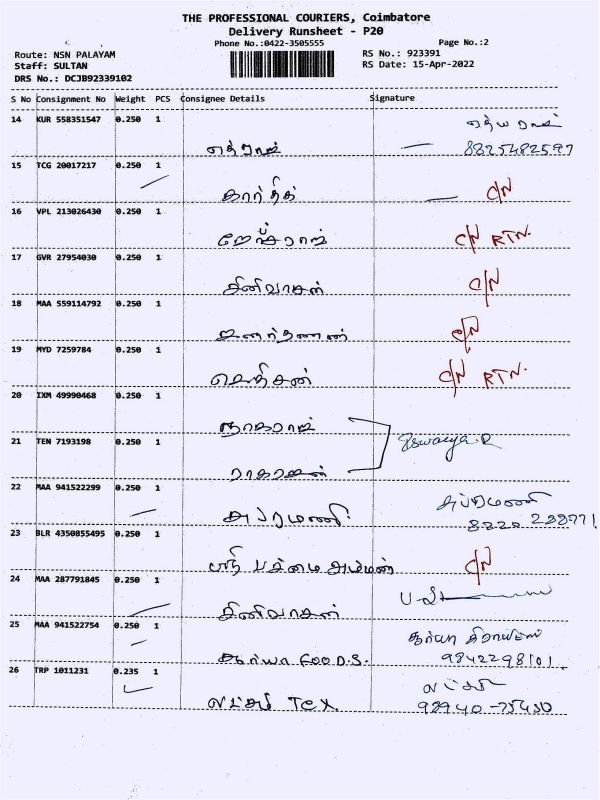 THE PROFESSIONAL COURIERS, Coimbatore
Delivery Runsheet - P20
Phone No.:0422-3505555
Page No.:2
Route: NSN PALAYAM
RS No.: 923391
Staff: SULTAN
RS Date: 15-Apr-2022
DRS No.: DCJB92339102
S No Consignment No Weight PCS Consignee Details Signature
14 KUR 558351547 0.250 1
8825482597
15 TCG 20017217 0.250 1
கார்திக் C/N
16 VPL 213026430 0.250 1
C/N RTN.
17 GVR 27954030 0.250 1
சினிவாசன் C/N
18 MAA 559114792 0.250 1
C/N
19 MYD 7259784 0.250 1
C/N RTN.
20 IXM 49990468 0.250 1
நாகராஜ்
21 TEN 7193198 0.250 1
22 MAA 941522299 0.250 1
சுப்ரமணி சுப்ரமணி
23 BLR 4350855495 0.250 1
ஸ்ரீ பச்சை அம்மன் C/N
24 MAA 287791845 0.250 1
சினிவாசன்
25 MAA 941522754 0.250 1
சூர்யா FOODS.
9842298101.
26 TRP 1011231 0.235 1
லட்சுமி TEX.